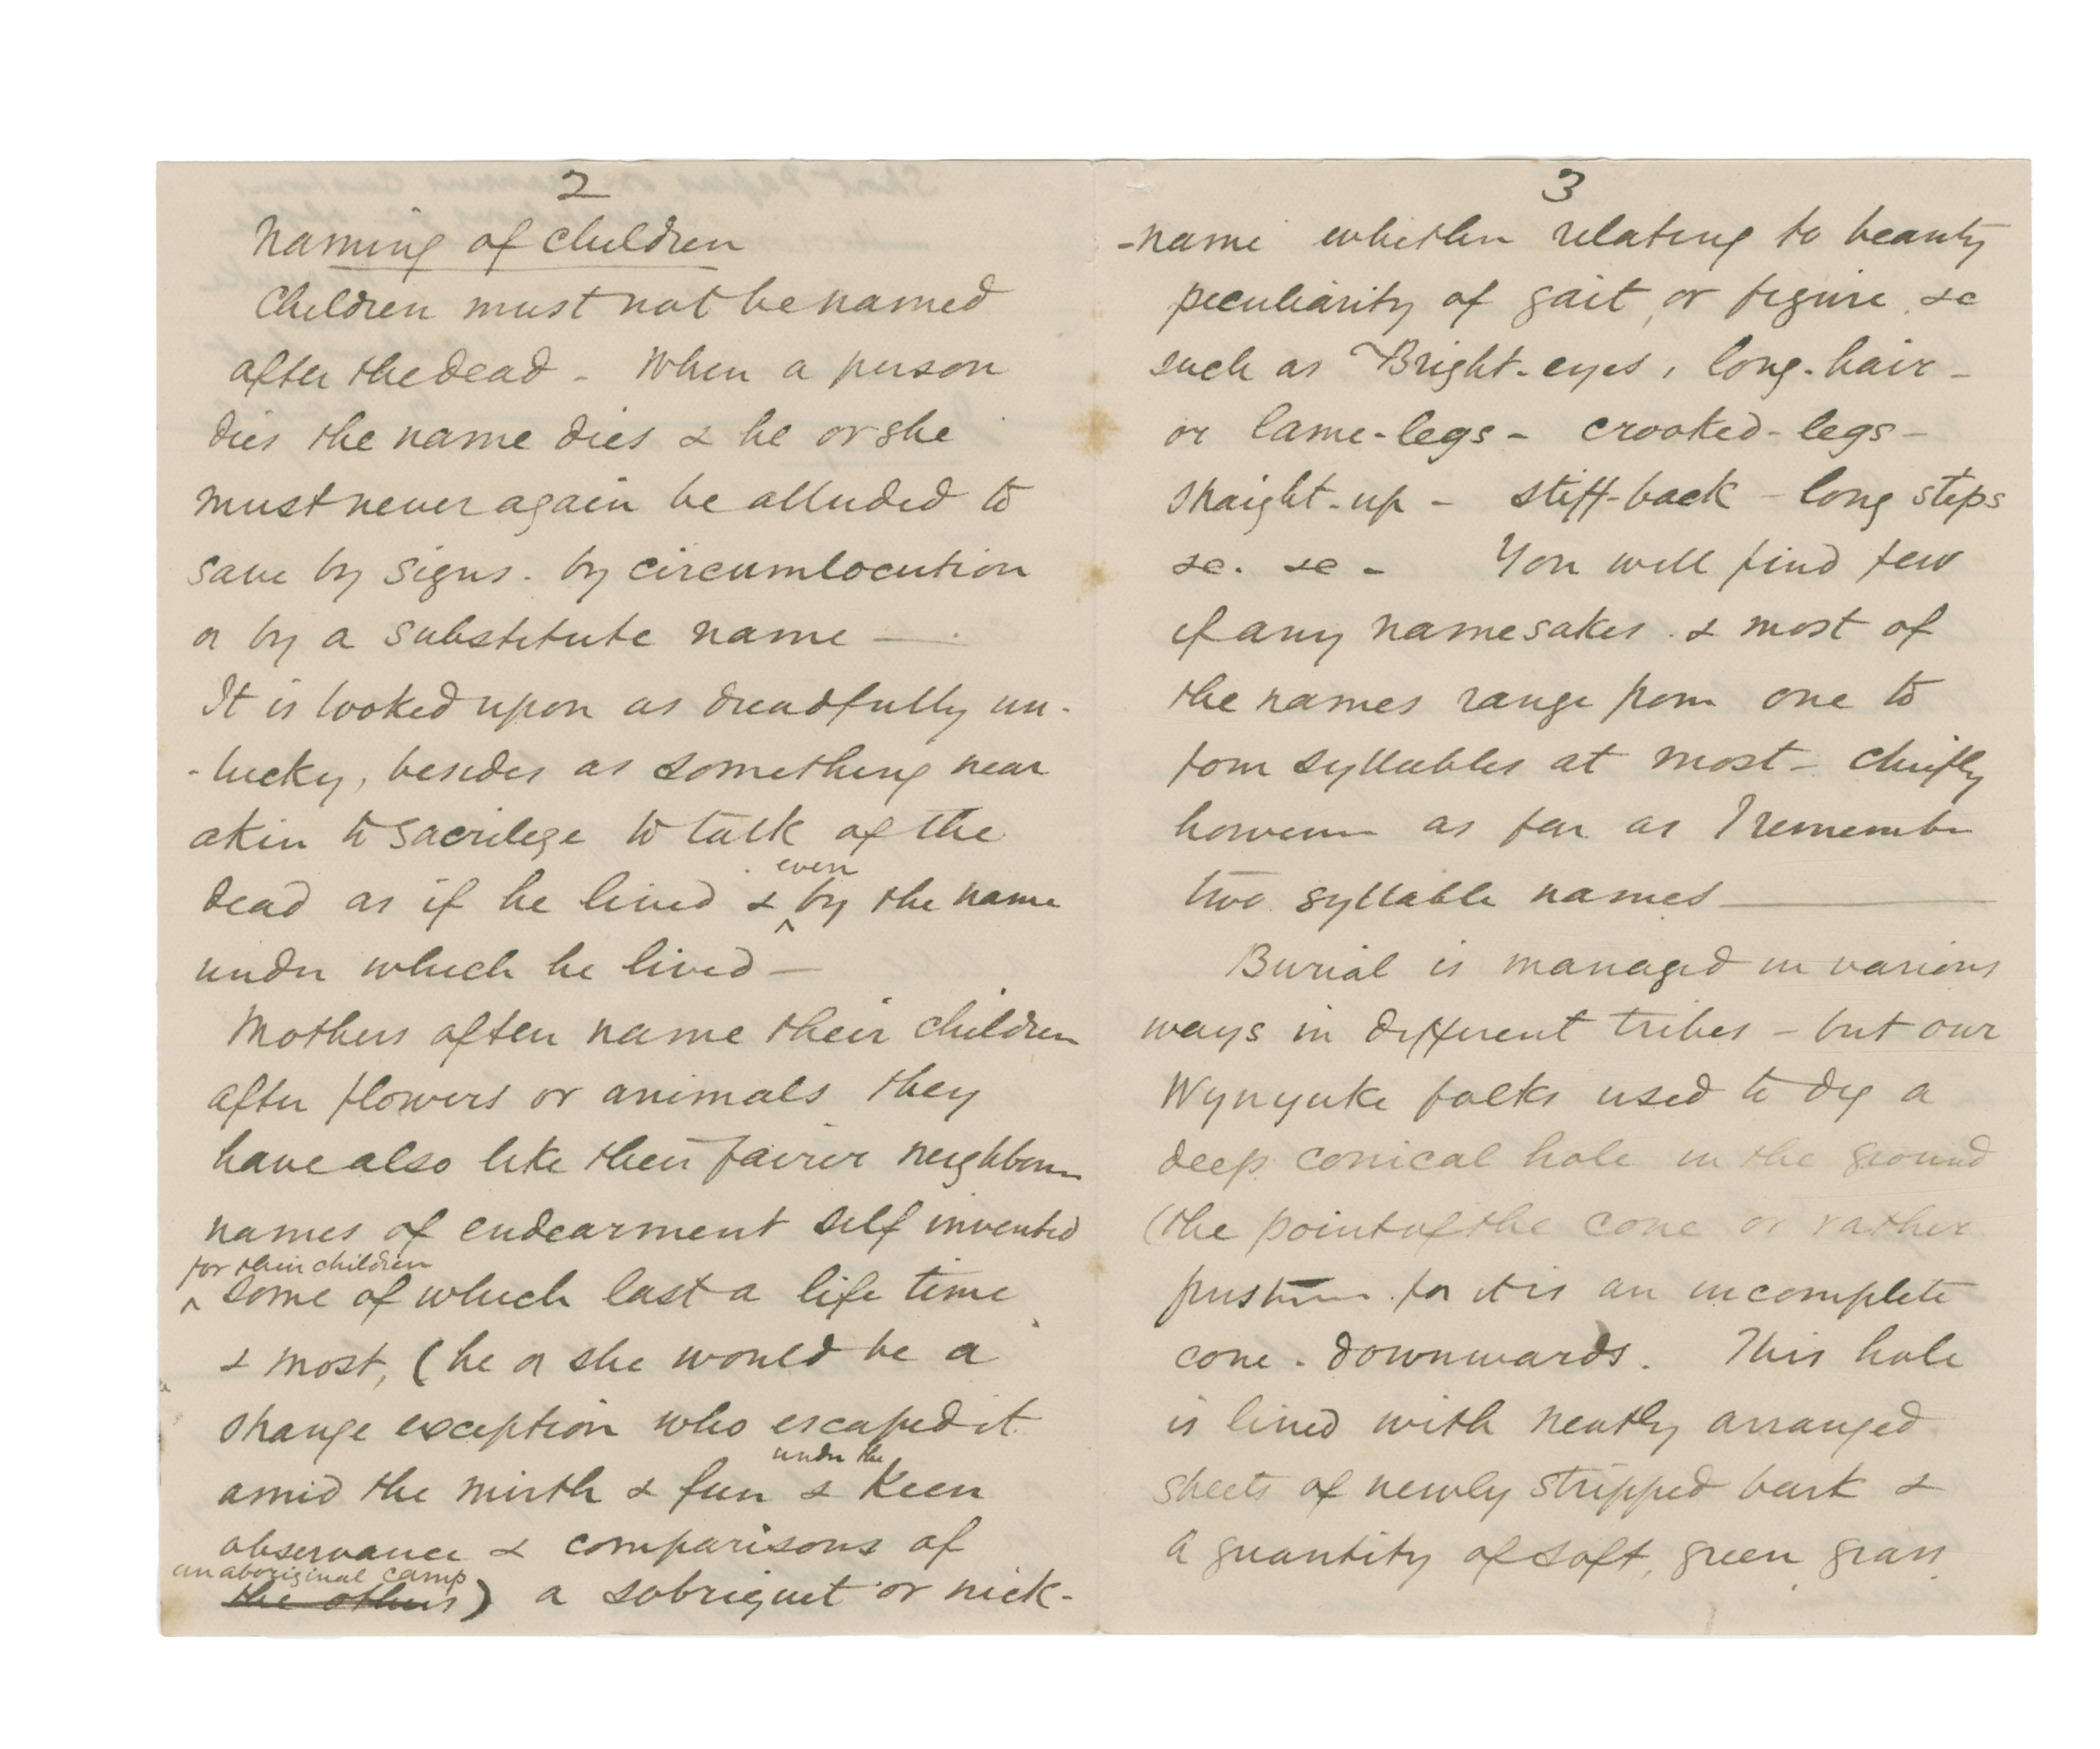 2
Naming of children
Children must not be named
after the dead - When a person
dies the name dies & he or she
must never again be alluded to
save by signs. by circumlocution
or by a substitute name —
It is looked upon as dreadfully un-
-lucky, besides as something near
akin to sacrilege to talk of the
even
dead as if he lived & ^ by the name
under which he lived —
Mothers often name their children
after flowers or animals they
have also like their fairer neighbours
names of endearment self invented
for their children
^ some of which last a life time
& most, (he or she would be a
strange exception who escaped it
under the
amid the mirth & fun & keen
observance & comparisons of
an aboriginal camp
the others) a sobriquet or nick-
3
-name whether relating to beauty
peculiarity of gait, or figure, &c
such as Bright-eyes, long-hair -
or lame-legs - crooked-legs -
straight-up - stiff-back - long steps
&c. &c - You will find few
if any namesakes. & most of
the names range from one to
four syllables at most - chiefly
however as far as I remember
two syllable names —
Burial is managed in various
ways in different tribes - but our
Wynyuke folks used to dig a
deep conical hole in the ground
(the point of the cone or rather
frustrum. for it is an incomplete
cone. downwards. This hole
is lined with neatly arranged
sheets of newly stripped bark &
a quantity of soft, green, grass,